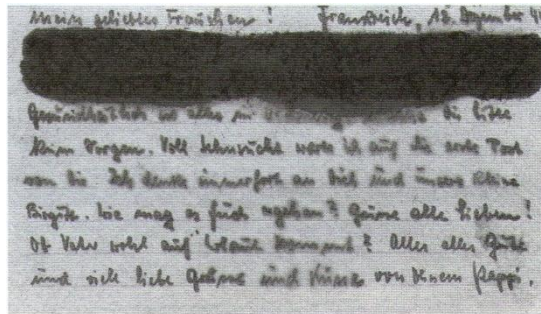 Mein geliebtes Frauchen! Frankreich, 18. Dezember 4
Gesundheitlich ist alles in die bitte
keine Sorgen. Voll Sehnsucht warte ich auf die erste Post
von dir. Ich denke immerfort an dich und unsere kleine
Birgitt. Wie mag es Euch ergehen? Grüsse alle Lieben!
Ob Vater wohl auf Urlaub kommt? Alles alles Gute
und viele liebe Grüsse und Küsse von deinem Pappi.